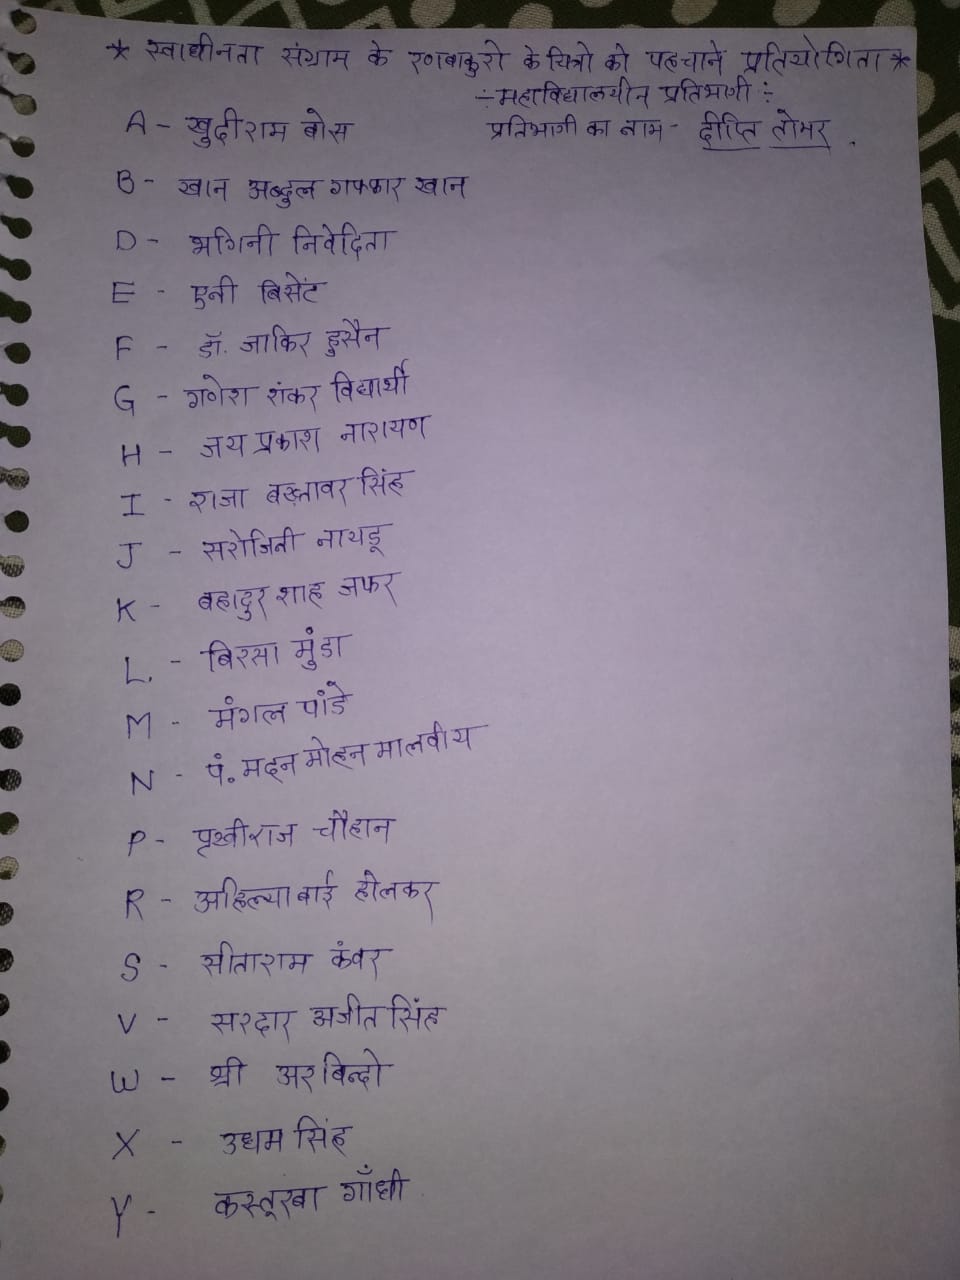 * स्वाधीनता संग्राम के रणबाकुरो के चित्रो को पहचाने प्रतियोगिता *
÷ महाविद्यालयीन प्रतिभागी ÷
A - खुदीराम बोस प्रतिभागी का नाम - दीप्ति तोमर .
B - खान अब्दुल गफ्फार खान
D - भगिनी निवेदिता
E - एनी बिसेंट
F - डॉ. जाकिर हुसैन
G - गणेश शंकर विद्यार्थी
H - जय प्रकाश नारायण
I - राजा बख्तावर सिंह
J - सरोजिनी नायडू
K - बहादुर शाह जफर
L. - बिरसा मुंडा
M - मंगल पांडे
N - पं. मदन मोहन मालवीय
P - पृथ्वीराज चौहान
R - अहिल्या बाई होलकर
S - सीताराम कंवर
V - सरदार अजीत सिंह
W - श्री अरबिन्दो
X - उधम सिंह
Y - कस्तूरबा गाँधी